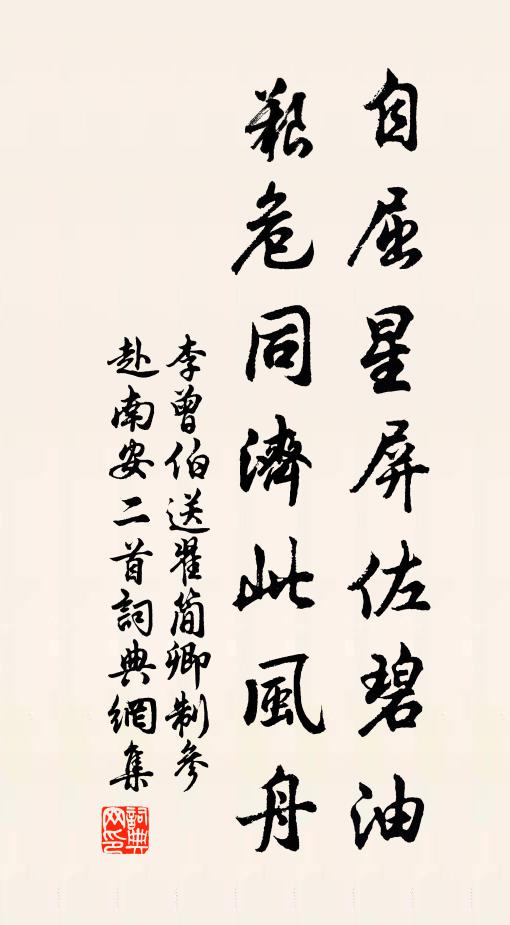 自屈星屏佐碧油
艱危同濟此風舟
李曾伯送翟簡卿制參
赴南安二首詞典網集
詞典网印